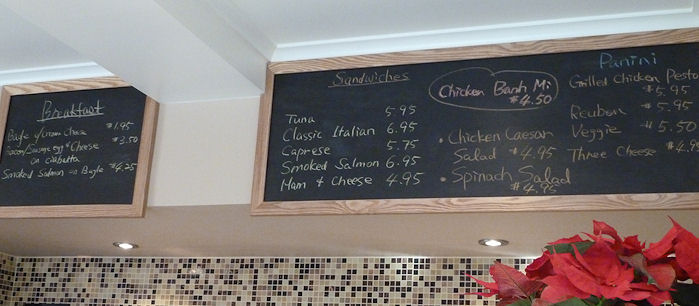 Breakfast
Bagle w/cream cheese $1.95
Bacon/Sausage egg & Cheese $3.50
on ciabatta
Smoked Salmon on Bagle $4.25
Sandwiches
Tuna 5.95
Classic Italian 6.95
Caprese 5.75
Smoked Salmon 6.95
Ham & Cheese 4.95
Chicken Banh Mi
$4.50
• Chicken Caesar
Salad $4.95
• Spinach Salad
$4.95
Panini
Grilled Chicken Pesto
$5.95
Reuben $5.95
Veggie $5.50
Three Cheese $4.95